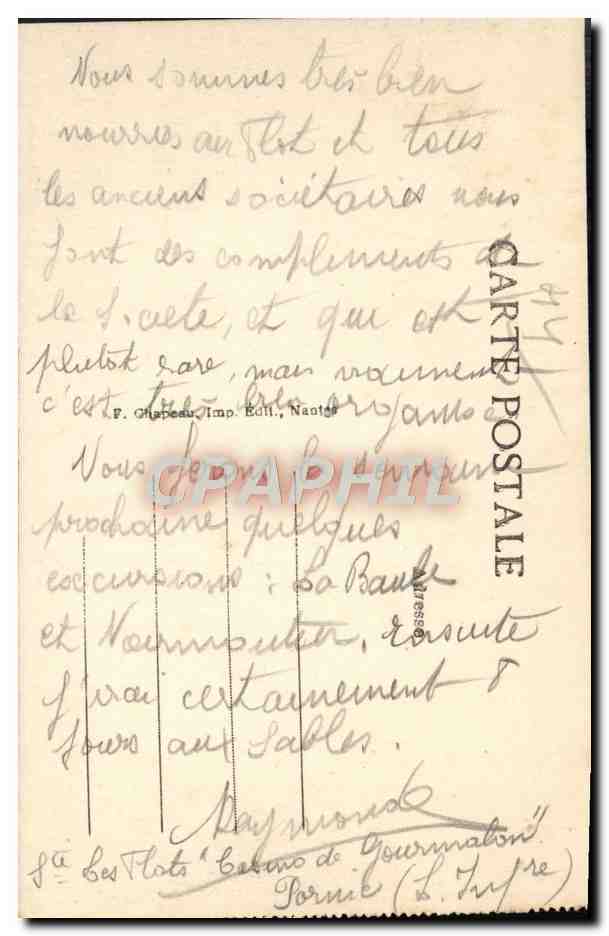 Nous sommes très bien
nourries au Flot et tous
les anciens sociétaires nous
font des complements de
la Société, et qui est
plutôt rare, mais vraiment
c'est très bien organisé
F. Chapeau, Imp. Edit., Nantes
Nous ferons la semaine
prochaine quelques
excursions : La Baule
et Noirmoutier, ensuite
j'irai certainement 8
jours aux Sables.
Raymonde
Sté Les Flots "Casino de Gourmalon"
Pornic (L. Infre)
CARTE POSTALE
Adresse
CPAPHIL